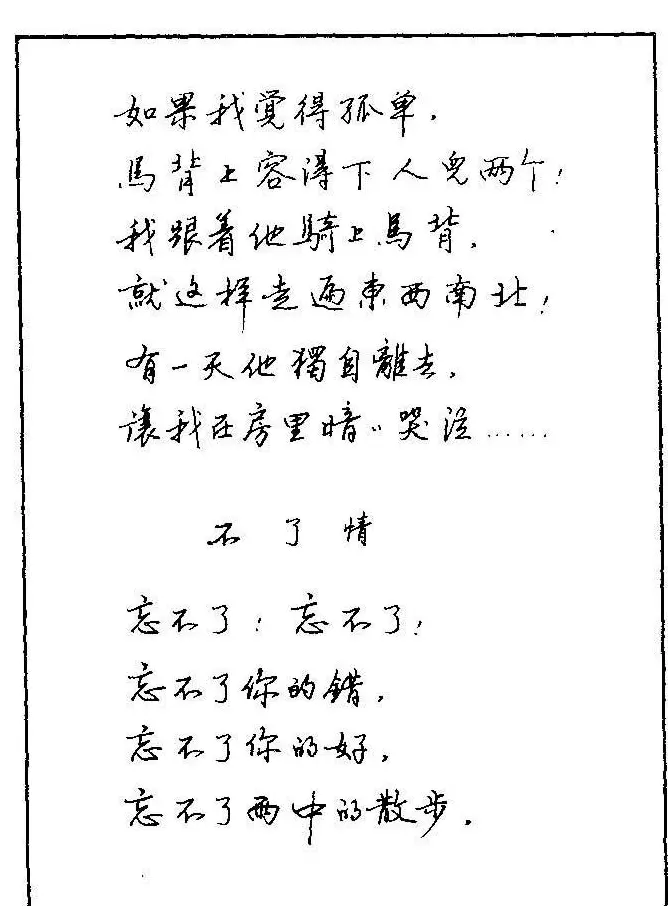 如果我覺得孤单.
馬背上容得下人兒两个!
我跟着他騎上馬背.
就这样走遍東西南北!
有一天他獨自離去.
讓我在房里暗〃哭泣……
不了情
忘不了!忘不了!
忘不了你的錯.
忘不了你的好.
忘不了雨中的散步.